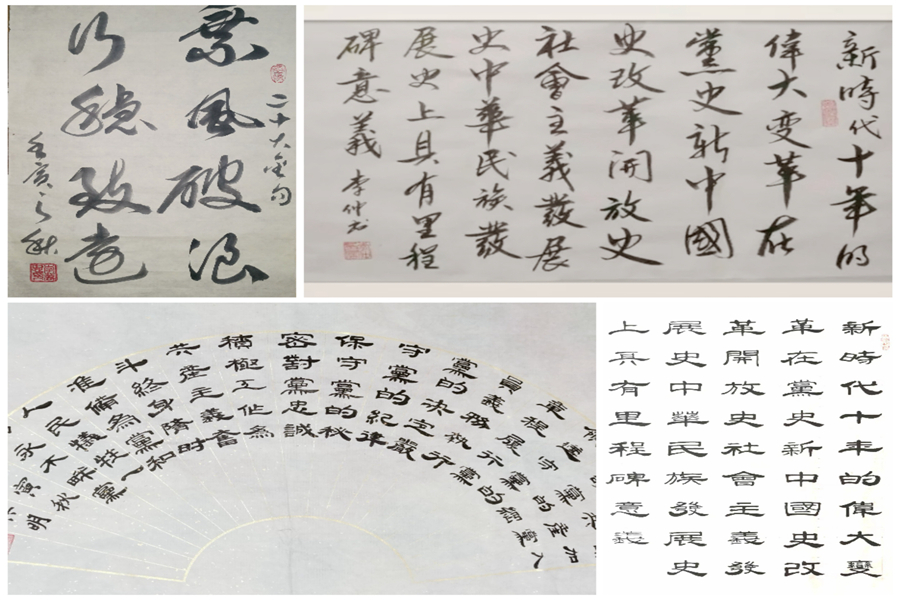 二十大金句
乘風破浪
行穩致遠
壬寅之秋
新時代十年的
偉大变革在
黨史新中國
史改革開放史
社會主義發展
史中華民族發
展史上具有里程
碑意義 李仲
加入
章程履行黨
員義務執行
黨的決定嚴
守黨的紀律
保守黨的秘
密對黨忠誠
積極工作為
共産主義奮
斗終身隨時
准備為黨和
人民犧牲一
永不叛黨
寅秋
明
新時代十年的偉大變
革在黨史新中國史改
革開放史社會主義發
展史中華民族發展史
上具有里程碑意義